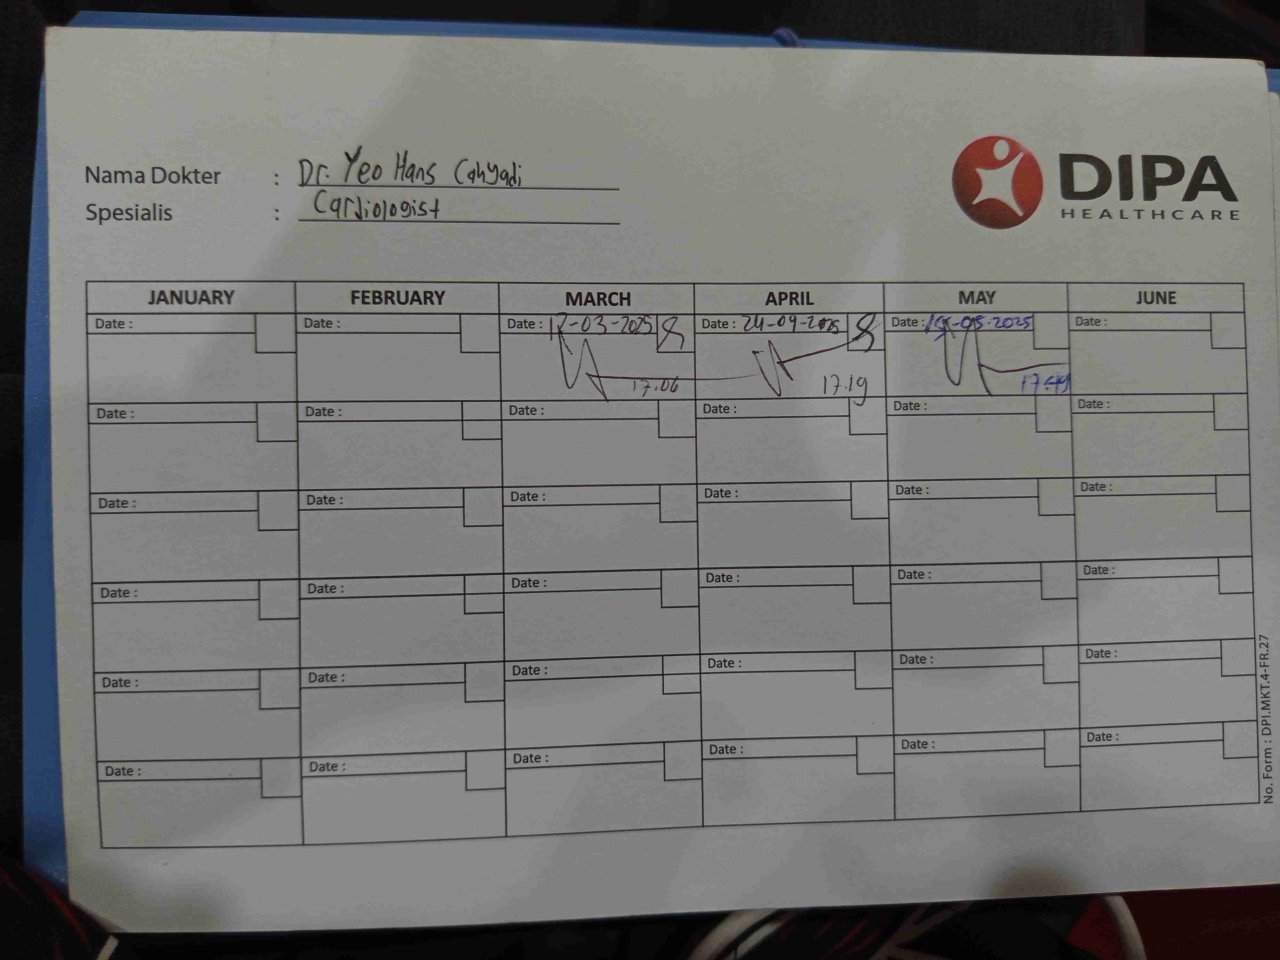 Nama Dokter : Dr. Yeo Hans Cahyadi
Spesialis : Cardiologist
DIPA
HEALTHCARE
JANUARY FEBRUARY MARCH APRIL MAY JUNE
Date : Date : Date : 17-03-2025 Date : 24-04-2025 Date : -05-2025 Date :
17.06 17.19 17.49
Date : Date : Date : Date : Date : Date :
Date : Date : Date : Date : Date : Date :
Date : Date : Date : Date : Date : Date :
Date : Date : Date : Date : Date : Date :
Date : Date : Date : Date : Date : Date :
No. Form : DPI.MKT.4-FR.27